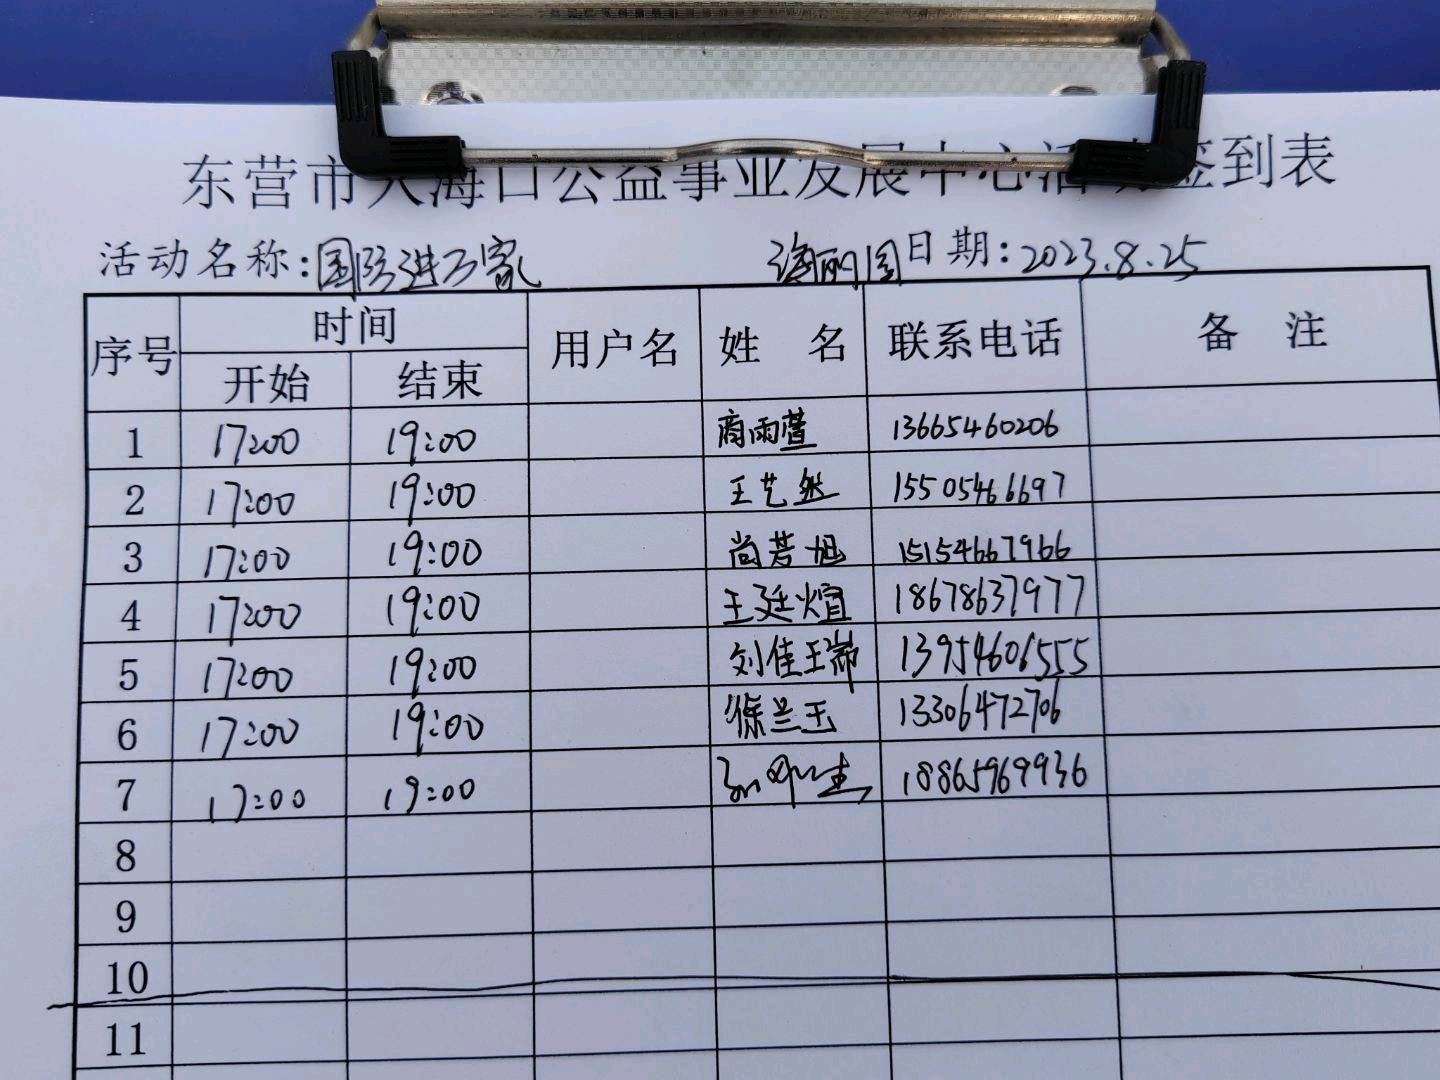 东营市大海口公益事业发展中心活动签到表
活动名称:国防进万家 海丽园 日期:2023.8.25
序号 时间 用户名 姓 名 联系电话 备 注
开始 结束
1 17:00 19:00 商雨萱 13665460206
2 17:00 19:00 王艺然 15505466697
3 17:00 19:00 尚芳旭 15154667966
4 17:00 19:00 王廷煊 18678637977
5 17:00 19:00 刘佳 13954606555
6 17:00 19:00 徐兰玉 13306472706
7 17:00 19:00 18865969936
8
9
10
11